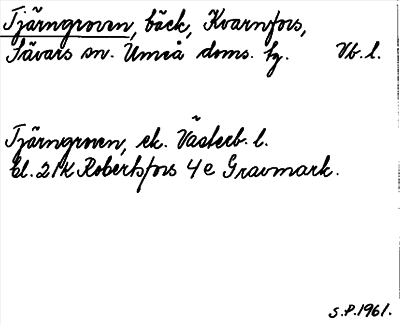 Tjärngroven, bäck, Kvarnfors,
Sävars sn. Umeå doms. tg. Vb. l.
Tjärngroven, ek. Västerb. l.
bl. 21K Robertsfors 4e Gravmark.
S.P. 1961.